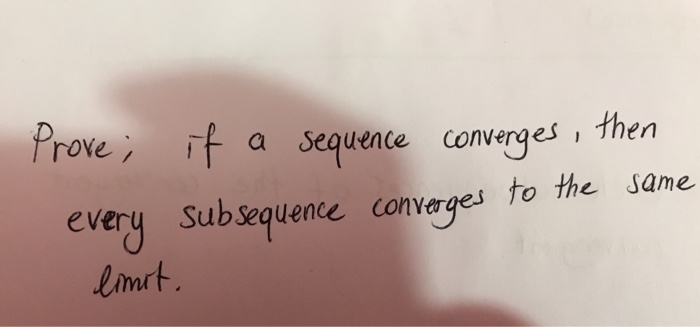 Prove; if a sequence converges, then
every subsequence converges to the same
limit.